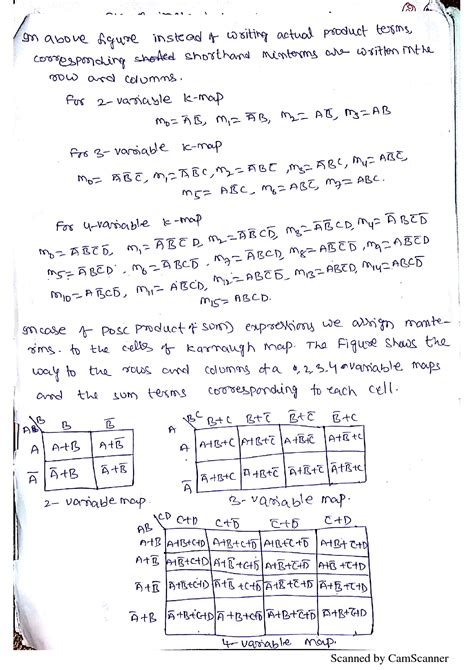 In above figure instead of writing actual product terms,
corresponding shorthand minterms are written in the
row and columns.
For 2-variable k-map
m0= A̅B̅, m1= A̅B, m2= AB̅, m3= AB
For 3-variable k-map
m0= A̅B̅C̅, m1= A̅B̅C, m2= A̅BC̅, m3= A̅BC, m4= AB̅C̅,
m5= AB̅C, m6= ABC̅, m7= ABC.
For 4-variable k-map
m0= A̅B̅C̅D̅, m1= A̅B̅C̅D, m2= A̅B̅CD̅, m3= A̅B̅CD, m4= A̅BC̅D̅
m5= A̅BC̅D, m6= A̅BCD̅, m7= A̅BCD, m8= AB̅C̅D̅, m9= AB̅C̅D
m10= AB̅CD̅, m11= AB̅CD, m12= ABC̅D̅, m13= ABC̅D, m14= ABCD̅
m15= ABCD.
In case of POSC product of sum) expressions we assign maxte-
rms. to the cells of Karnaugh map. The Figure shows the
way to the rows and columns of a 2,3,4 variable maps
and the sum terms corresponding to each cell.
A B B B̅
A A+B A+B̅
A̅ A̅+B A̅+B̅
2- variable map.
A BC B+C B+C̅ B̅+C̅ B̅+C
A A+B+C A+B+C̅ A+B̅+C̅ A+B̅+C
A̅ A̅+B+C A̅+B+C̅ A̅+B̅+C̅ A̅+B̅+C
3- variable map.
AB CD C+D C+D̅ C̅+D̅ C̅+D
A+B A+B+C+D A+B+C+D̅ A+B+C̅+D̅ A+B+C̅+D
A+B̅ A+B̅+C+D A+B̅+C+D̅ A+B̅+C̅+D̅ A+B̅+C̅+D
A̅+B̅ A̅+B̅+C+D A̅+B̅+C+D̅ A̅+B̅+C̅+D̅ A̅+B̅+C̅+D
A̅+B A̅+B+C+D A̅+B+C+D̅ A̅+B+C̅+D̅ A̅+B+C̅+D
4-variable map.
Scanned by CamScanner